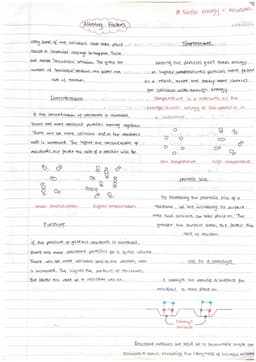 * Kinetic energy = movement
Altering Factors
Only some of the collisions that take place
cause a chemical change to happen. These
are called "successful" collisions. The greater the
number of "successful" collisions, the faster the
rate of reaction.
Concentration
If the concentration of reactants is increased,
there are more reactant particles moving together.
There will be more collisions and so the reaction
rate is increased. The higher the concentration of
reactants, the faster the rate of a reaction will be.
lower concentration
higher concentration
Pressure
If the pressure of gaseous reactants is increased,
there are more reactant particles for a given volume.
There will be more collisions and so the reaction rate
is increased. The higher the pressure of reactants,
the faster the rate of a reaction will be.
Temperature
Heating the particles give them energy.
At higher temperatures particles move faster
as a result, there are many more chances
for collisions with enough energy.
Temperature is a measure of the
average kinetic energy of the particles in
a substance.
low temperature
high temperature
particle size
By decreasing the particle size of a
reactant, we are increasing its surface
area that collisions can take place on. The
greater the surface area, the faster the
rate of reaction.
use of a catalyst
A catalyst can provide a surface for
reactions to take place on.
Catalyst
Surface